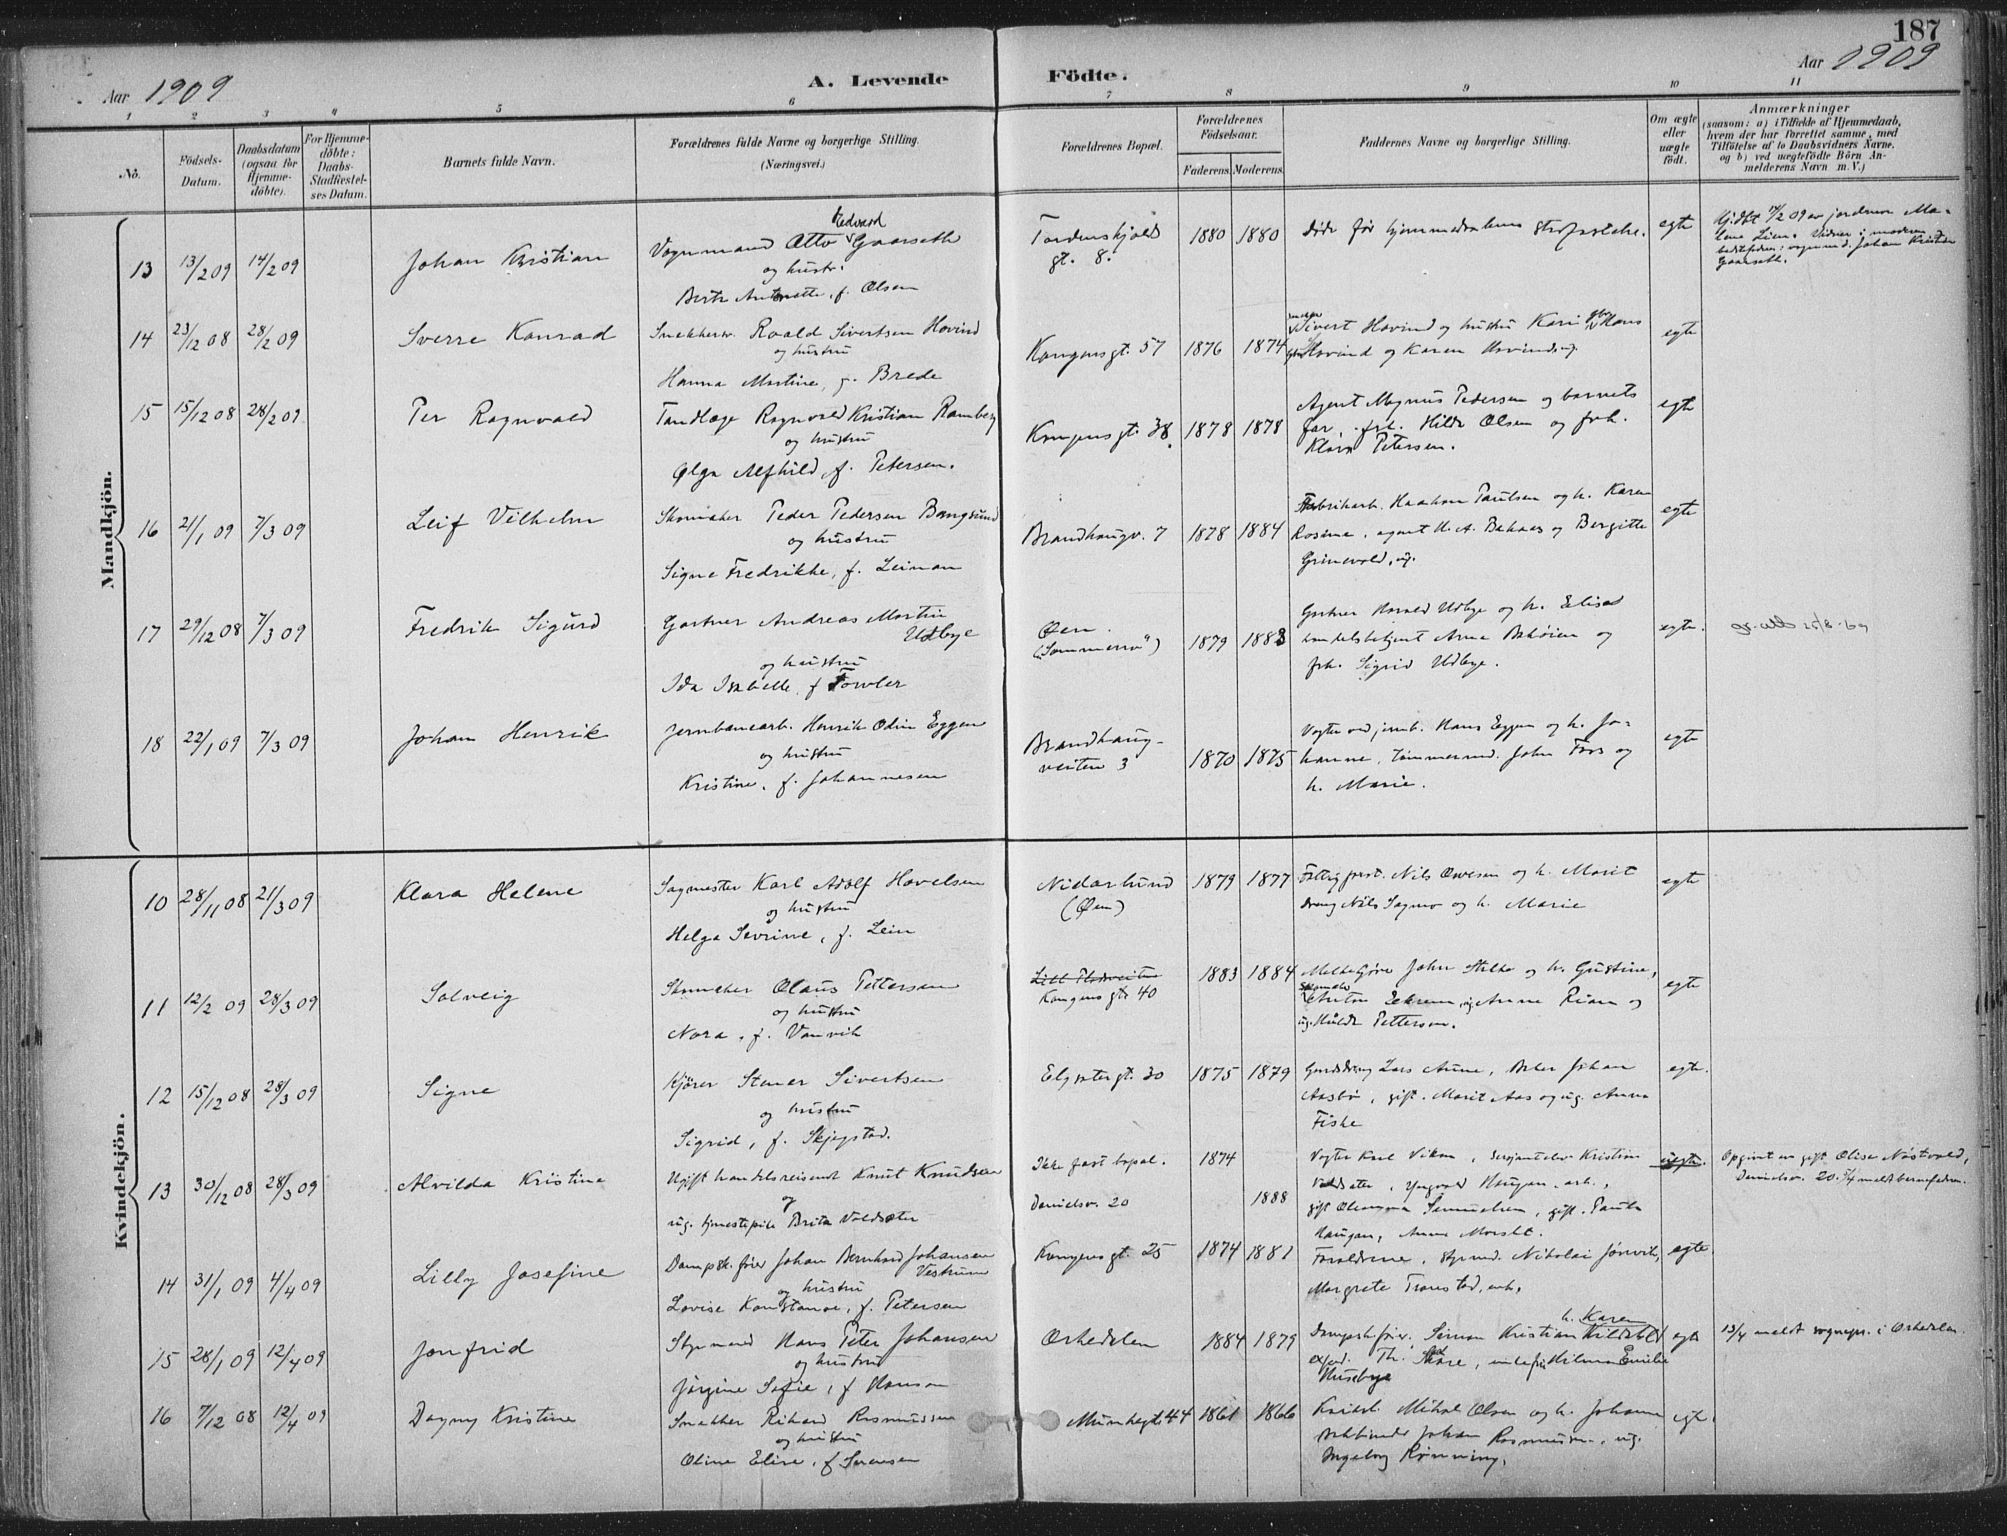 187
Aar 1909
A. Levende Födte.
Aar 1909
1 2 3 4 5 6 7 8 9 10 11
No.
Födsels-Datum.
Daabsdatum (ogsaa för Hjemmedöbte).
For Hjemmedöbte: Daabs-Stadfæstelses Datum.
Barnets fulde Navn.
Forældrenes fulde Navne og borgerlige Stilling. (Næringsvei.)
Forældrenes Bopæl.
Forældrenes Födselsaar.
Faderens. Moderens.
Faddernes Navne og borgerlige Stilling.
Om ægte eller uægte födt.
Anmærkninger
(saasom: a) i Tilfælde af Hjemmedaab, hvem der har forrettet samme, med Tilföielse af to Daabsvidners Navne, og b) ved uægtefödte Börn Anmelderens Navn m. V.)
Mandkjön.
13 13/2 09 14/2 09 Johan Kristian
Vognmand Otto Edvard Gaarseth
og hustr.
Berte Antonette, f. Olsen
Tordenskjolds
gt. 8.
1880 1880
Døde før hjemmedaabens stadfæstelse.
egte
14 23/12 08 28/2 09 Sverre Konrad
Snekkersv. Roald Sivertsen Hovind
og hustru
Hanna Martine, f. Brede
Kongensgt. 57 1876 1874
Sivert Hovind og hustru Kari
Hovind og Karen
egte
15 15/12 08 28/2 09 Per Ragnvald
Tandlæge Ragnvald Kristian Ramberg
og hustru
Olga Alfhild, f. Petersen.
Kongensgt. 38. 1878 1878
Agent Magnus Pedersen og barnets
far, frk. Hilda Olsen og frk.
Klara Petersen.
egte
16 21/1 09 7/3 09 Leif Vilhelm
Skomaker Peder Pedersen Bangsund
og hustru
Signe Fredrikke, f. Leinan
Brandhaugv. 7 1878 1884
Fabrikarb. Haakon Paulsen og h. Karen
Rosine, agent H. A. Baknes og Bergitte
Grinevold, ug.
egte
17 29/12 08 7/3 09 Fredrik Sigurd
Gartner Andreas Martin
Udbye
og hustru
Ida Isabelle, f Fowler
Øen.
("Sommerro")
1879 1883
Gartner Harald Udbye og h. Elise
handelsbetjent Arne og
frk. Sigrid Udbye.
egte.
18 22/1 09 7/3 09 Johan Henrik
Jernbanearb. Henrik Odin Eggen
og hustru
Kristine, f. Johannesen
Brandhaug-
veiten 3
1870 1875
Vogter ved jernb. Hans Eggen og h. Jo-
hanne, tømmermd. John Foss og
h. Marie.
egte
Kvindekjön.
10 28/11 08 21/3 09 Klara Helene
Sagmester Karl Adolf Havelsen
og hustru
Helga Sevrine, f. Lein
Nidarlund
(Øen)
1879 1877
Nils Owesen og h. Marit
dreng Nils Sagmo og h. Marie
egte
11 12/2 09 28/3 09 Solveig
Skomaker Olaus Pettersen
og hustru
Nora, f. Vanvik
Kongensgt. 40
1883 1884
John og h. Gustine,
Skomaker Anton Ekrem, ug. Anne Rian og
ug. Hulda Pettersen.
egte
12 15/12 08 28/3 09 Signe
Kjører Stener Sivertsen
og hustru
Sigrid, f. Skjegstad.
Elgsetergt. 30 1875 1879
Gaardsdreng Lars Aune, Johan
Aasbø, gift. Marit Aas og ug. Anna
Fiske
egte.
13 30/12 08 28/3 09 Alvilda Kristine
Ugift handelsreisende Knut Knudsen
og
ug. tjenestepike Brita Voldseter
Ikke fast bopæl.
Danielsv. 20
1874
1888
Vogter Karl Vikan, Kristian
Voldseter, Yngvald Haugan, arb.,
gift Oleanna Samuelsen, gift. Paula
Haugan, Anna Morset.
uegte.
Opgivet av gift Olise Nøstvold,
Danielsv. 20.
14 31/1 09 4/4 09 Lilly Josefine
Dampsk.fører Johan Bernhard Johansen
Vestrum
og hustru
Lovise Konstanse, f. Petersen
Kongensgt. 25 1874 1881
Forældrene, styrmd. Nikolai Jønvik,
Margrete Tronstad, enke.
egte.
15 28/1 09 12/4 09 Jonfrid
Styrmand Hans Peter Johansen
og hustru
Jørgine Sofie, f Hansen
Orkedalen 1884 1879
h. Karen
Dampsk.fører. Simon Kristian Kildebol
exped. Th. Skare, enkefru Hilma Emilie
Huseby
egte
13/4 meldt sognepr. i Orkedalen.
16 7/12 08 12/4 09 Dagny Kristine
Snekker Rikard Rasmussen
og hustru
Oline Elise, f Sørensen
Munkegt. 44 1861 1866
Mikal Olsen og h. Johanna
Johan Rasmussen, ug.
Ingeborg Rønning.
egte